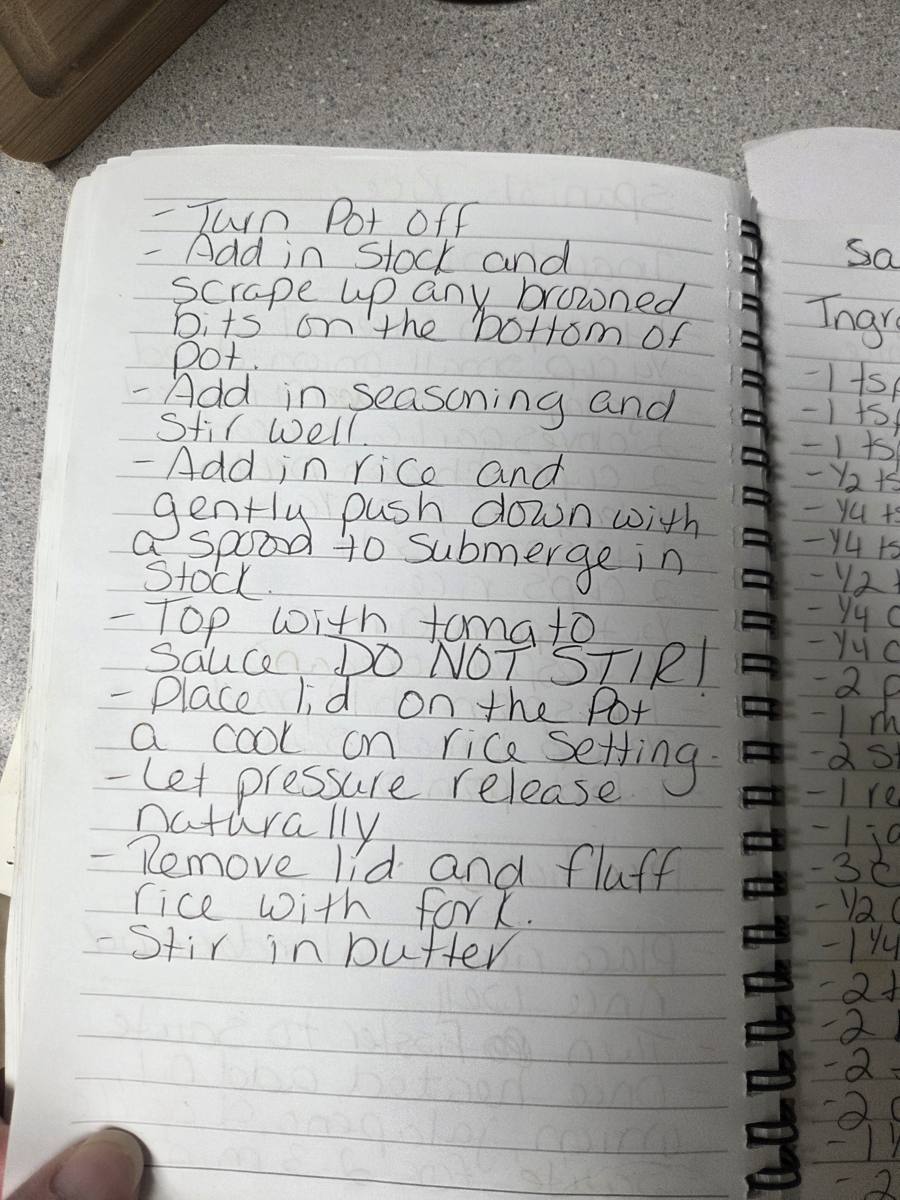 - Turn Pot off
- Add in Stock and
scrape up any browned
bits on the bottom of
pot.
- Add in seasoning and
Stir well.
- Add in rice and
gently push down with
a spood to submerge in
Stock.
- Top with tomato
sauce DO NOT STIR!
- Place lid on the Pot
a cook on rice setting.
- Let pressure release
naturally
- Remove lid and fluff
rice with fork.
- Stir in butter
Sa
Ingr
- 1 tsp
- 1 tsp
- 1 tsp
- 1/2 ts
- 1/4 ts
- 1/4 ts
- 1/2 t
- 1/4 c
- 1/4 c
- 2 p
- 1 m
- 2 st
- 1 re
- 1 ja
- 3 c
- 1/2 c
- 1 1/4
- 2 t
- 2
- 2
- 2 c
- 1
- 2